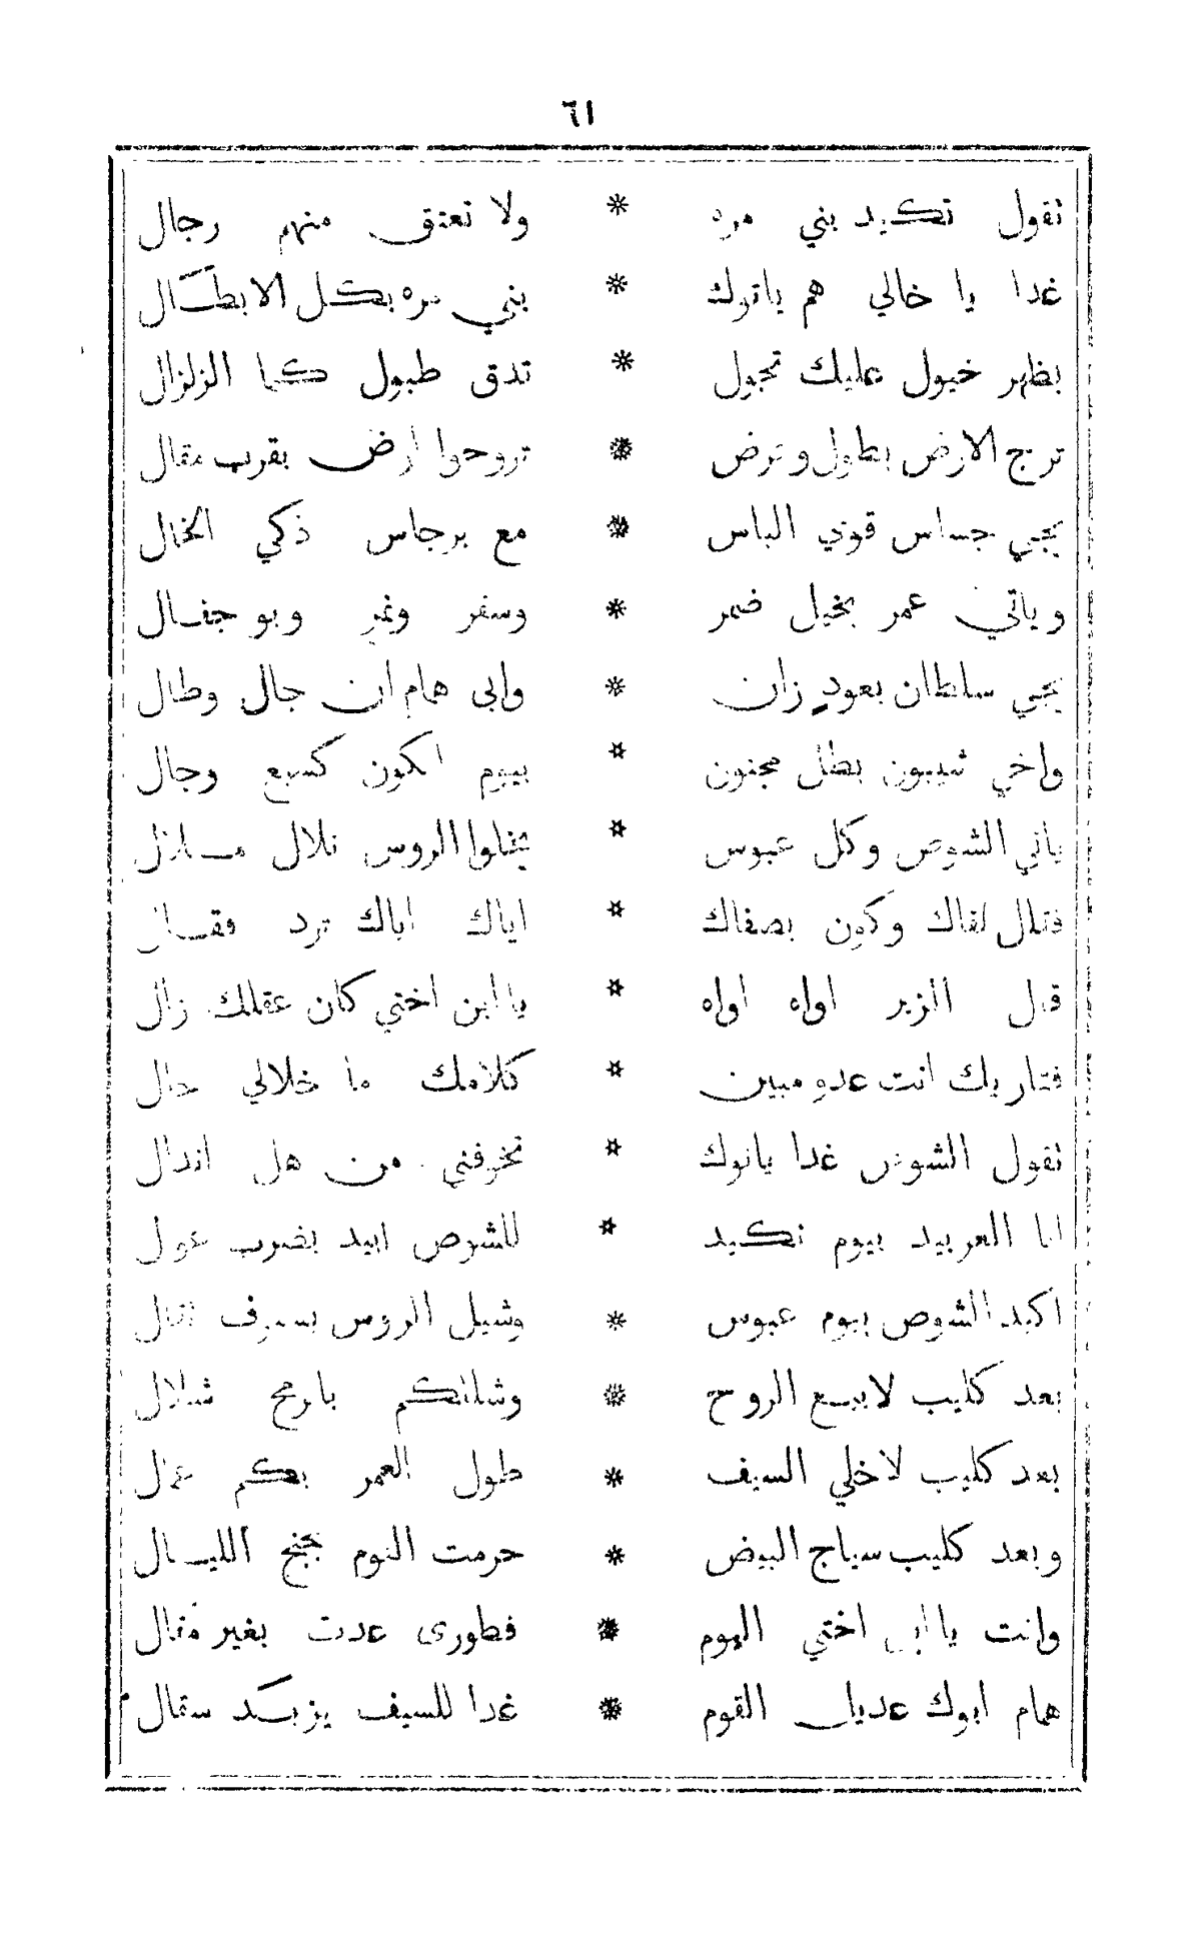 ٦١
تقول تكيد بني مره * ولا تعتق منهم رجال
غدا يا خالي هم ياتوك * بني مره بكل الابطال
بظهر خيول عليك تجول * تدق طبول كما الزلزال
ترج الارض بطول وعرض * تروحوا ارض بقرب مقال
يجي جساس قوي الباس * مع برجاس ذكي الخال
وياتي عمر بخيل ضمر * وسفر ونمر وبو جفال
يجي سلطان بعود زان * وابي همام ان جال وطال
واخي شيبون بطل مجنون * بيوم الكون كسبع وجال
ياتي الشوص وكل عبوس * يخلوا الروس تلال
فتلال لفاك وكون بصفاك * اياك اياك ترد فقال
قال الزير اواه اواه * يا ابن اختي كان عقلك زال
فتاريك انت عدو مبين * كلامك ما خلالي حال
تقول الشوص غدا ياتوك * تخوفني من هل اندال
انا العربيد بيوم نكيد * للشوص ابيد بضرب عول
اكيد الشوص بيوم عبوس * وشيل الروس بسيوف
بعد كليب لابيع الروح * وشلتكم بارمح شلال
بعد كليب لاخلي السيف * طول العمر بعكم عمال
وبعد كليب سياج البيض * حرمت النوم بجنح الليال
وانت يا ابن اختي اليوم * فطورى عدت بغير مقال
همام ابوك عديل القوم * غدا للسيف يزيد سقال